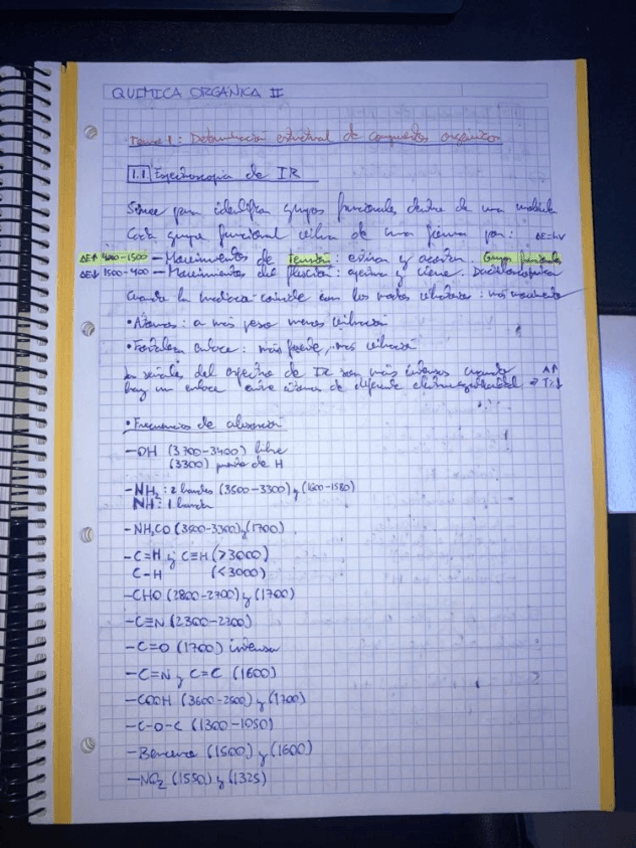 QUIMICA ORGANICA II
Tema 1: Determinacion estructural de compuestos organicos
1.1 Espectroscopia de IR
Sirve para identificar grupos funcionales dentro de una molecula
Cada grupo funcional vibra de una forma por: ΔE=hν
ΔE↑ 4000-1500 - Movimientos de tensión: estira y acorta. Grupos funcionales
ΔE↓ 1500-400 - Movimientos del flexión: y cierra.
Cuando la coincide con los modos vibratorios: más movimiento
• Átomos: a más peso menos vibración
• Fortaleza enlace: más fuerte, más vibración
La señales del espectro de IR son más intensas cuando A↑
hay un enlace entre átomos de diferente electronegatividad → T↓
• Frecuencias de absorción
-OH (3700-3400) libre
(3300) puente de H
-NH₂: 2 bandas (3500-3300) y (1600-1580)
NH: 1 banda
-NH₂CO (3500-3300) y (1700)
-C=H y C≡H (>3000)
C-H (<3000)
-CHO (2800-2700) y (1700)
-C≡N (2300-2200)
-C=O (1700) intensa
-C=N y C=C (1600)
-COOH (3600-2500) y (1700)
-C-O-C (1300-1050)
-Benceno (1500) y (1600)
-NO₂ (1550) y (1325)